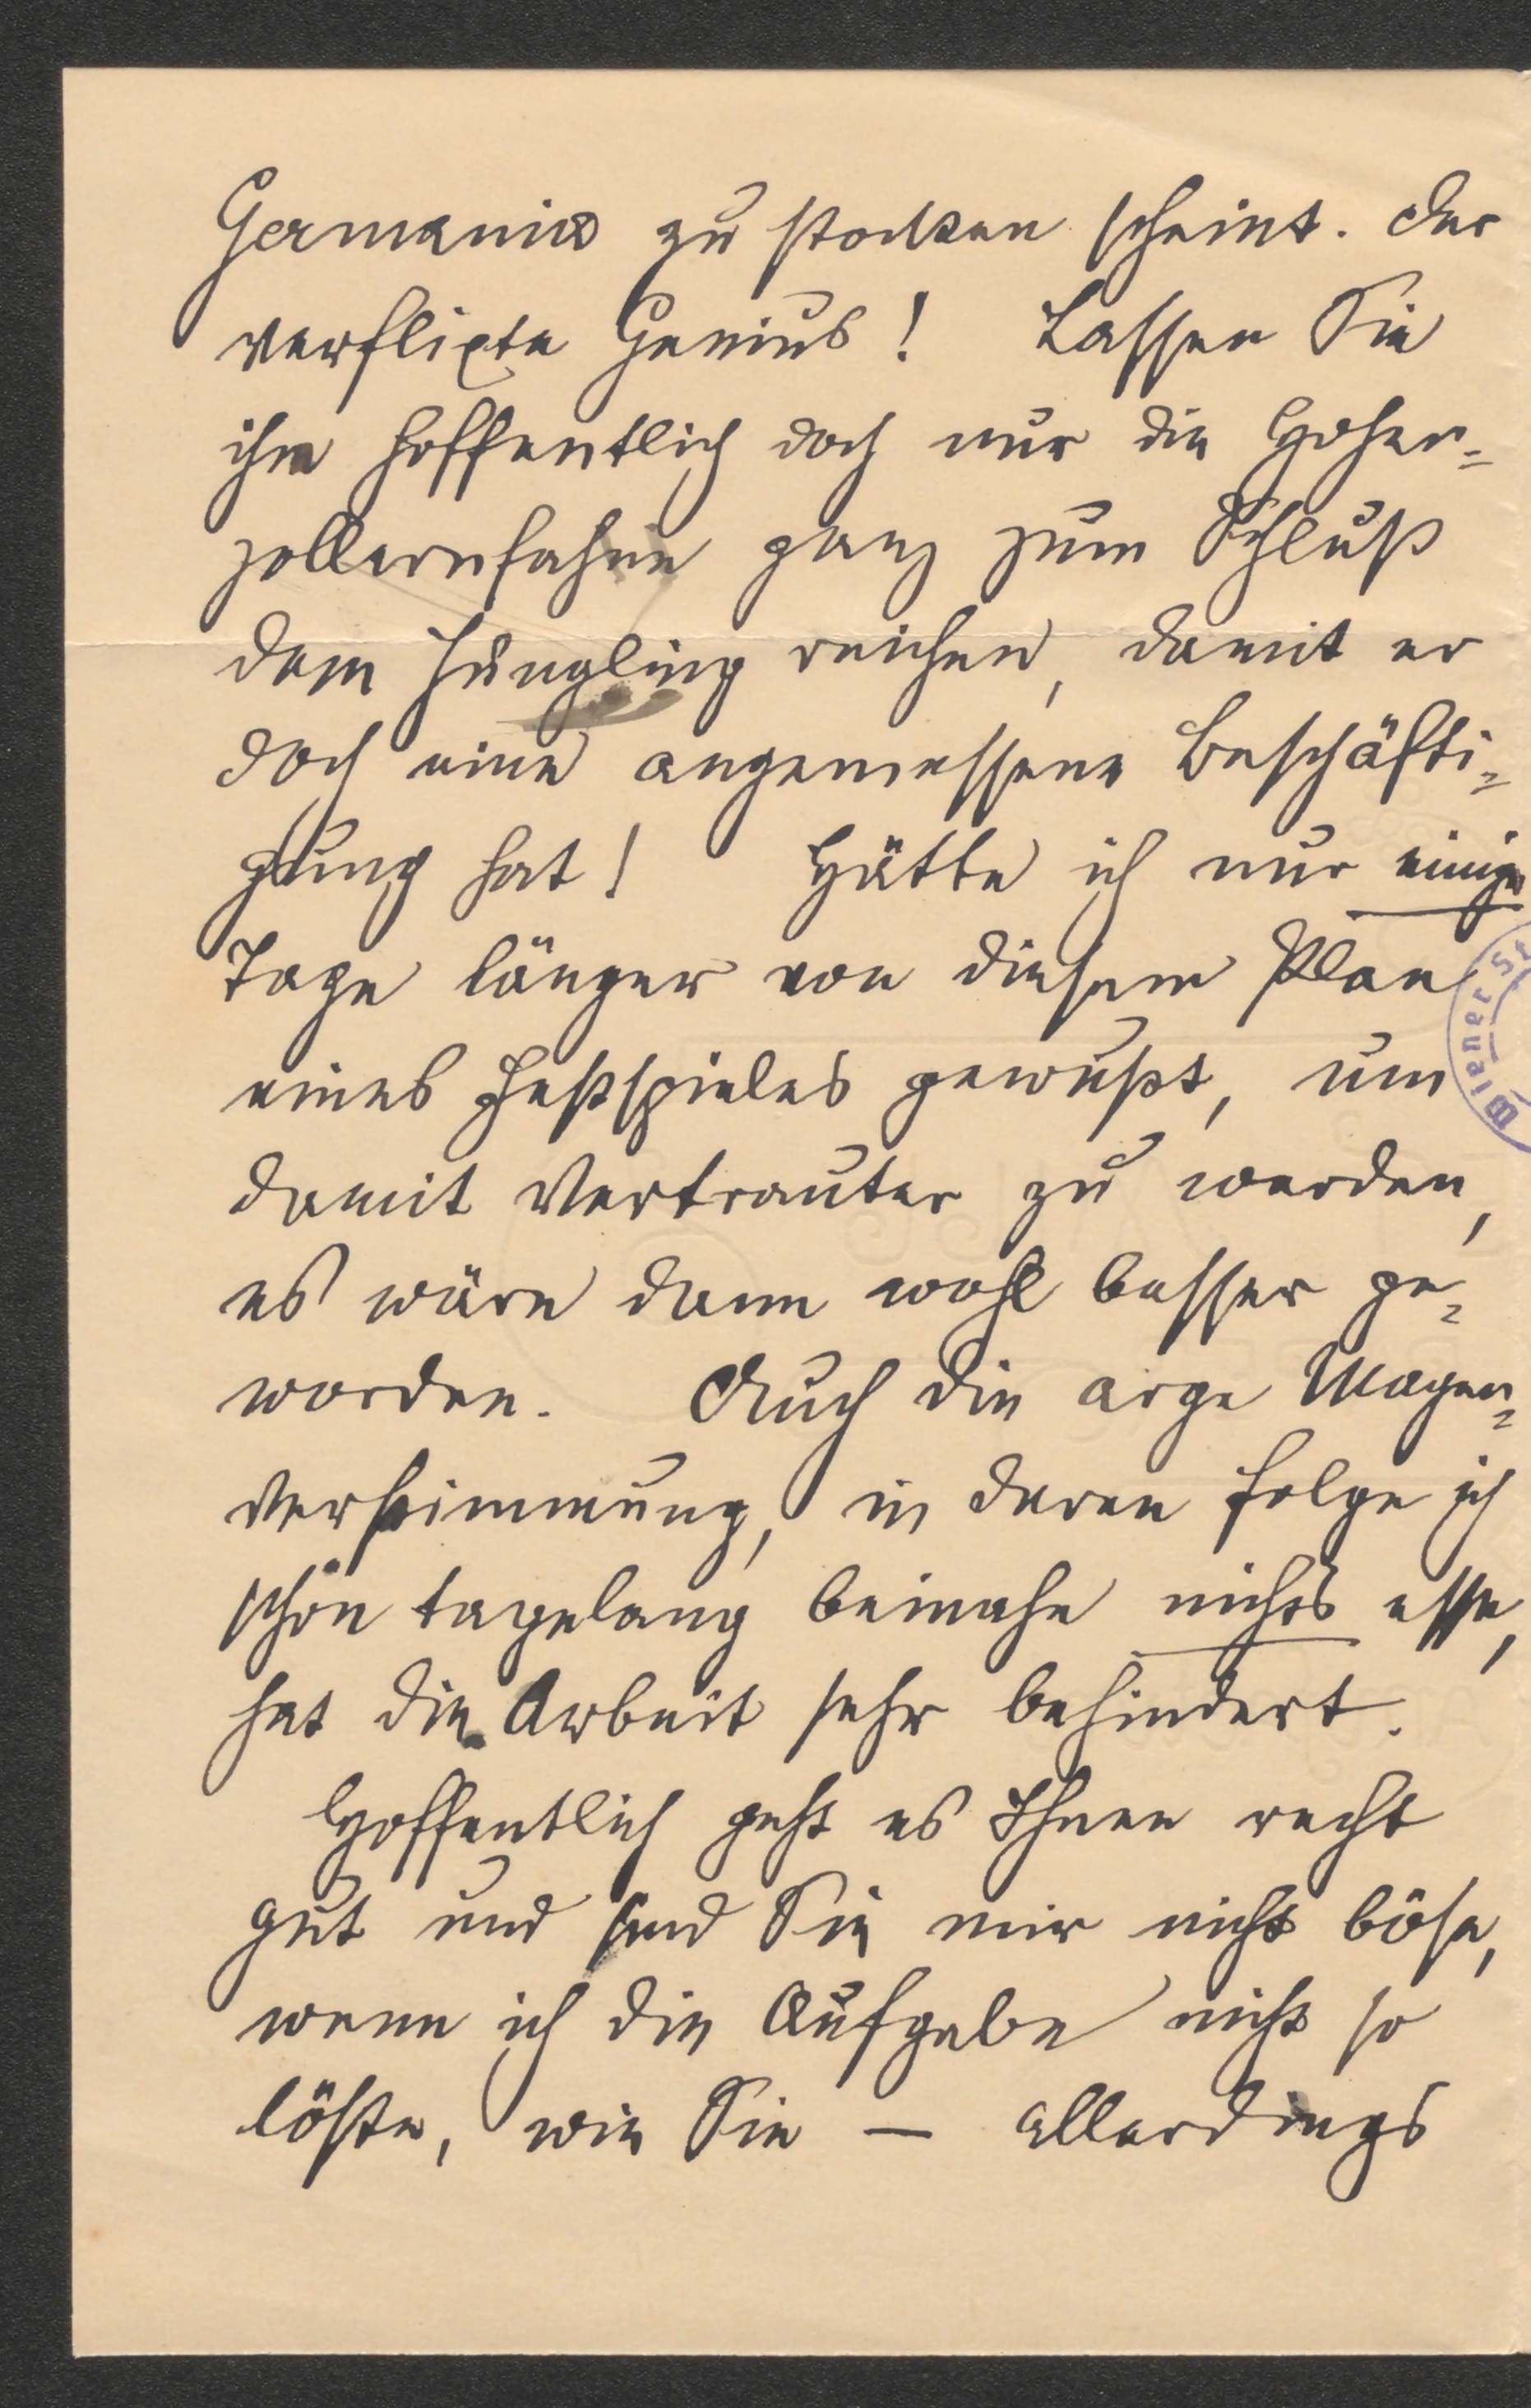 Germania zu stocken scheint. Der
verflixte Genius! Lassen Sie
ihn hoffentlich doch nur die Hohen=
zollernfahne ganz zum Schluß
dem Jüngling reichen, damit er
doch eine angemessene Beschäfti=
gung hat! Hätte ich nur einige
Tage länger von diesem Plan
eines Festspieles gewußt, um
damit vertrauter zu werden,
es wäre dann wohl besser ge=
worden. Auch die arge Magen=
verstimmung, in deren Folge ich
schon tagelang beinahe nichts esse,
hat die Arbeit sehr behindert.
Hoffentlich geht es Ihnen recht
gut und sind Sie mir nicht böse,
wenn ich die Aufgabe nicht so
löste, wie Sie — allerdings
Wiener St